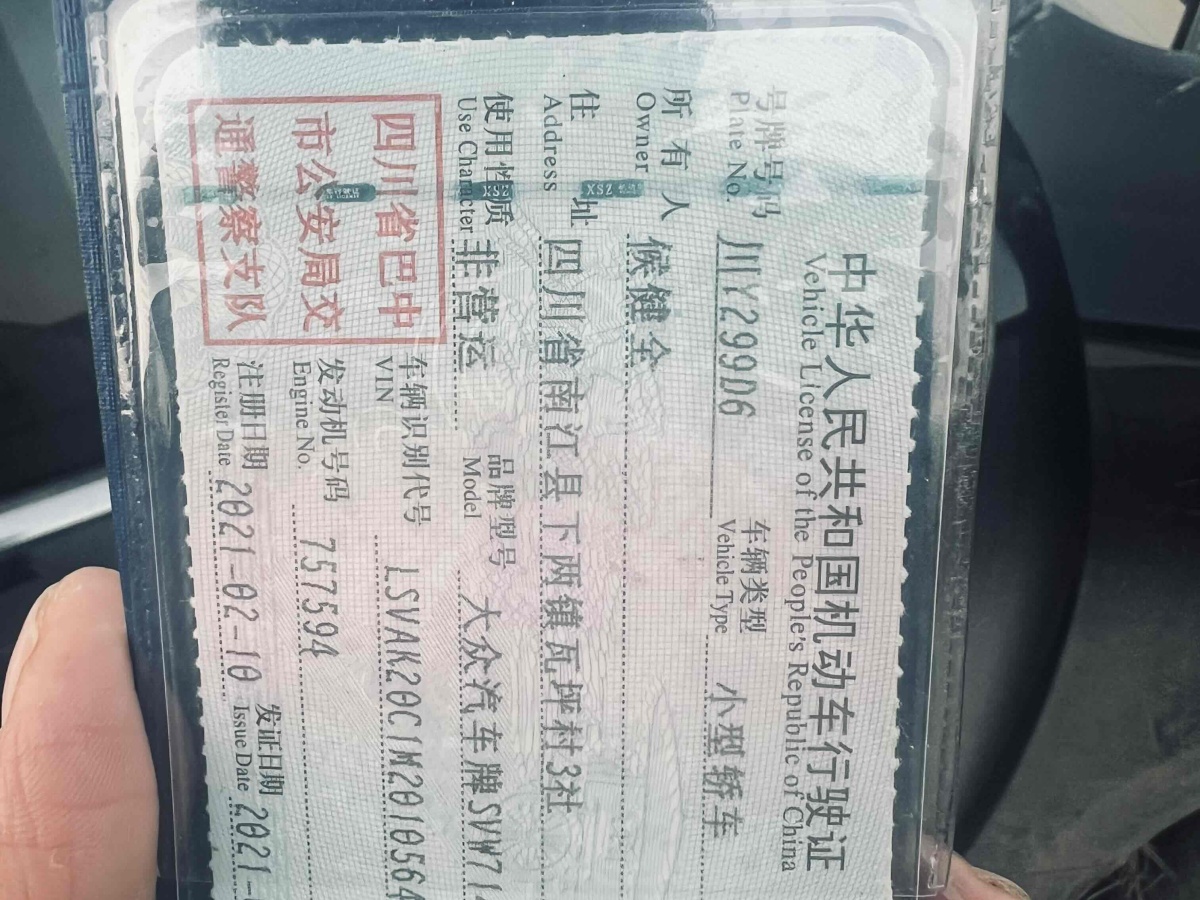 中华人民共和国机动车行驶证
Vehicle License of the People's Republic of China
号牌号码 川Y299D6 车辆类型 小型轿车
Plate No. Vehicle Type
所有人 候健全
Owner
住址 四川省南江县下两镇瓦坪村3社
Address
使用性质 非营运 品牌型号 大众汽车牌SVW71
Use Character Model
四川省巴中
市公安局交
通警察支队
车辆识别代号 LSVAK20C1M2010564
VIN
发动机号码 757594
Engine No.
注册日期 2021-02-10 发证日期 2021-
Register Date Issue Date